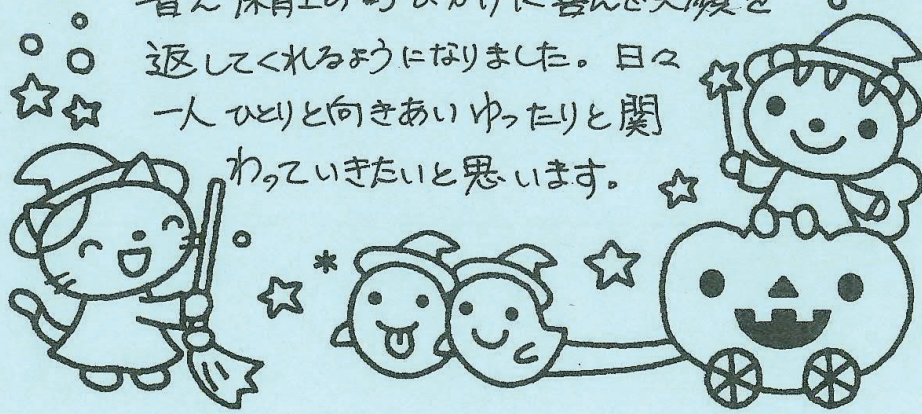 返してくれるようになりました。日々
一人ひとりと向きあいゆったりと関
わっていきたいと思います。